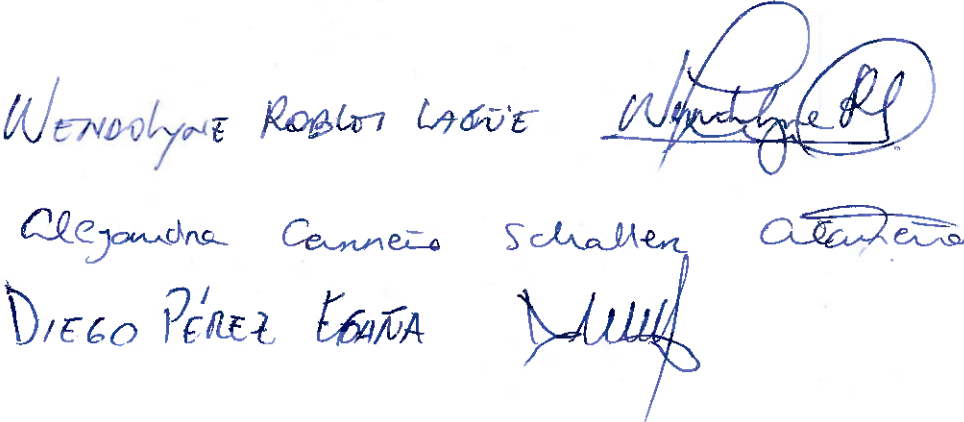 WENDOLYNE ROBLES LAGÜE Wendolyne
Alejandra Carreño Schaller
DIEGO PÉREZ EGAÑA